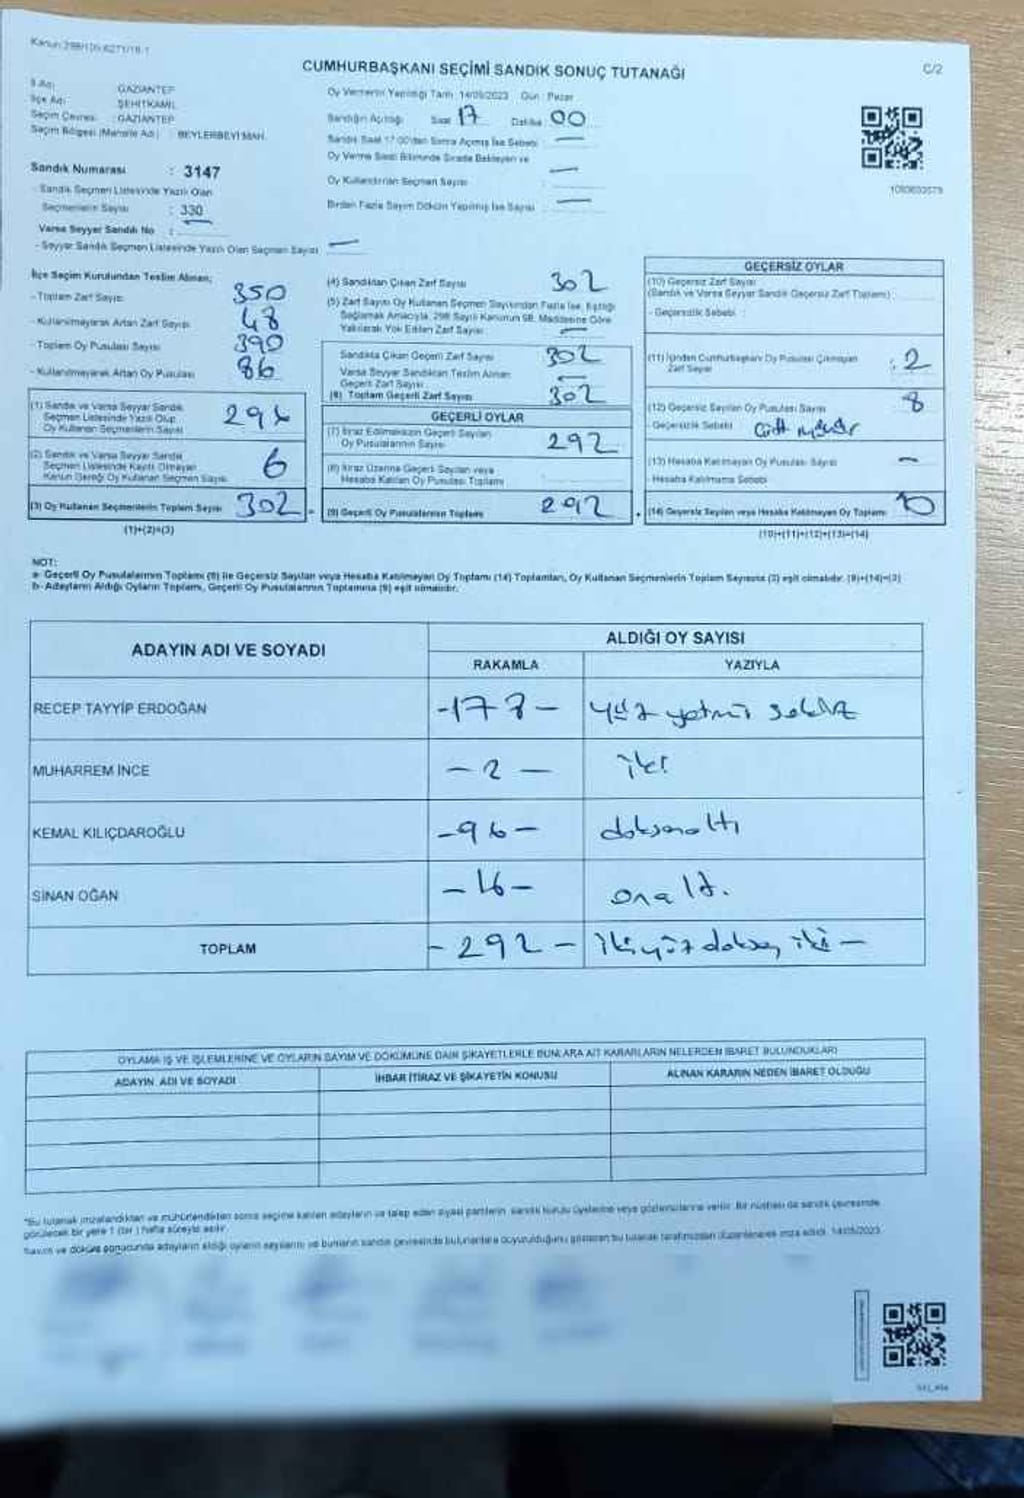 Kanun:298/105-6271/18-1
CUMHURBAŞKANI SEÇİMİ SANDIK SONUÇ TUTANAĞI
C/2
İl Adı : GAZİANTEP
İlçe Adı : ŞEHİTKAMİL
Seçim Çevresi : GAZİANTEP
Seçim Bölgesi (Mahalle Adı) : BEYLERBEYİ MAH.
Oy Vermenin Yapıldığı Tarih: 14/05/2023 Gün: Pazar
Sandığın Açıldığı Saat 17 Dakika: 00
Sandık Saat 17:00'den Sonra Açılmış İse Sebebi —
Oy Verme Saati Bitiminde Sırada Bekleyen ve
Oy Kullandırılan Seçmen Sayısı : —
Birden Fazla Sayım Döküm Yapılmış İse Sayısı : —
Sandık Numarası : 3147
- Sandık Seçmen Listesinde Yazılı Olan
Seçmenlerin Sayısı : 330
Varsa Seyyar Sandık No :
- Seyyar Sandık Seçmen Listesinde Yazılı Olan Seçmen Sayısı —
İlçe Seçim Kurulundan Teslim Alınan;
- Toplam Zarf Sayısı 350
- Kullanılmayarak Artan Zarf Sayısı 48
- Toplam Oy Pusulası Sayısı 390
- Kullanılmayarak Artan Oy Pusulası 86
(1) Sandık ve Varsa Seyyar Sandık
Seçmen Listesinde Yazılı Olup
Oy Kullanan Seçmenlerin Sayısı 296
(2) Sandık ve Varsa Seyyar Sandık
Seçmen Listesinde Kayıtlı Olmayan
Kanun Gereği Oy Kullanan Seçmen Sayısı 6
(3) Oy Kullanan Seçmenlerin Toplam Sayısı 302
(1)+(2)=(3)
(4) Sandıktan Çıkan Zarf Sayısı 302
(5) Zarf Sayısı Oy Kullanan Seçmen Sayısından Fazla İse, Eşitliği
Sağlamak Amacıyla, 298 Sayılı Kanunun 98. Maddesine Göre
Yakılarak Yok Edilen Zarf Sayısı —
Sandıkta Çıkan Geçerli Zarf Sayısı 302
Varsa Seyyar Sandıktan Teslim Alınan
Geçerli Zarf Sayısı —
(6) Toplam Geçerli Zarf Sayısı 302
GEÇERLİ OYLAR
(7) İtiraz Edilmeksizin Geçerli Sayılan
Oy Pusulalarının Sayısı 292
(8) İtiraz Üzerine Geçerli Sayılan veya
Hesaba Katılan Oy Pusulası Toplamı
(9) Geçerli Oy Pusulalarının Toplamı 292
GEÇERSİZ OYLAR
(10) Geçersiz Zarf Sayısı
(Sandık ve Varsa Seyyar Sandık Geçersiz Zarf Toplamı) :
- Geçersizlik Sebebi :
(11) İçinden Cumhurbaşkanı Oy Pusulası Çıkmayan
Zarf Sayısı : 2
(12) Geçersiz Sayılan Oy Pusulası Sayısı 8
- Geçersizlik Sebebi Çift mühür
(13) Hesaba Katılmayan Oy Pusulası Sayısı —
- Hesaba Katılmama Sebebi
(14) Geçersiz Sayılan veya Hesaba Katılmayan Oy Toplamı 10
(10)+(11)+(12)+(13)=(14)
NOT:
a- Geçerli Oy Pusulalarının Toplamı (9) ile Geçersiz Sayılan veya Hesaba Katılmayan Oy Toplamı (14) Toplamları, Oy Kullanan Seçmenlerin Toplam Sayısına (3) eşit olmalıdır. (9)+(14)=(3)
b- Adayların Aldığı Oyların Toplamı, Geçerli Oy Pusulalarının Toplamına (9) eşit olmalıdır.
ADAYIN ADI VE SOYADI
ALDIĞI OY SAYISI
RAKAMLA YAZIYLA
RECEP TAYYİP ERDOĞAN -178- yüz yetmiş sekiz
MUHARREM İNCE -2- iki
KEMAL KILIÇDAROĞLU -96- doksanaltı
SİNAN OĞAN -16- onaltı.
TOPLAM -292- ikiyüz doksan iki -
OYLAMA İŞ VE İŞLEMLERİNE VE OYLARIN SAYIM VE DÖKÜMÜNE DAİR ŞİKAYETLERLE BUNLARA AİT KARARLARIN NELERDEN İBARET BULUNDUKLARI
ADAYIN ADI VE SOYADI İHBAR İTİRAZ VE ŞİKAYETİN KONUSU ALINAN KARARIN NEDEN İBARET OLDUĞU
*Bu tutanak imzalandıktan ve mühürlendikten sonra seçime katılan adayların ve talep eden siyasi partilerin sandık kurulu üyelerine veya gözlemcilerine verilir. Bir nüshası da sandık çevresinde
görülecek bir yere 1 (bir) hafta süreyle asılır.
Sayım ve döküm sonucunda adayların aldığı oyların sayılarını ve bunların sandık çevresinde bulunanlara duyurulduğunu gösteren bu tutanak tarafımızdan düzenlenerek imza edildi. 14/05/2023